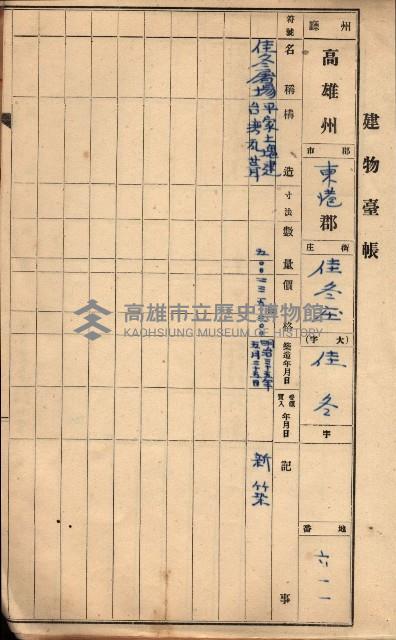 建物臺帳
州廳 高雄州 郡市 東港郡 街庄 佳冬庄 (大字) 佳冬 字 地番 六一一
符號 名稱 構造 寸法 數量 價格 築造年月日 年月日 記事
佳冬屠場 平家土塊建 明治三十五年 新築
台灣瓦葺 五月三十五日
高雄市立歷史博物館
KAOHSIUNG MUSEUM OF HISTORY